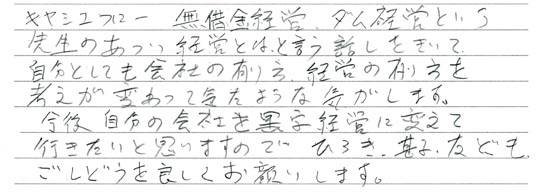 キャシュフロー 無借金経営、ダム経営という
先生のあつい経営とは、と言う話しをきいて、
自分としても会社の有り方、経営の有り方を
考えが変わって気たような気がします。
今後 自分の会社を黒字経営に変えて
行きたいと思いますので ひろき、甚子、友ども、
ごしどうを良しくお願りします。